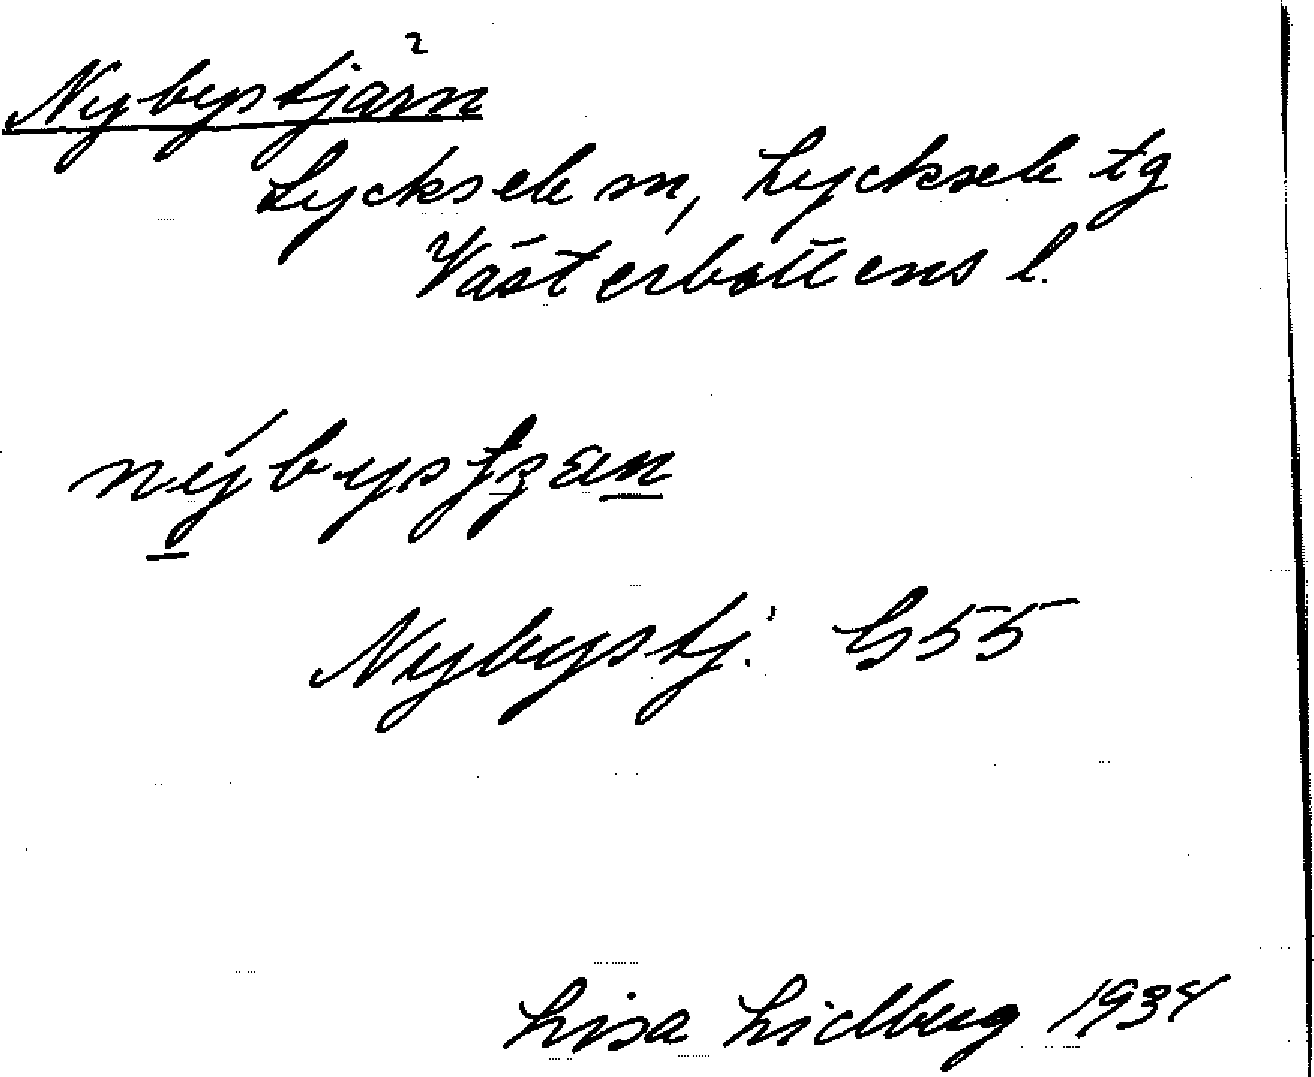 Nybystjärn 2
Lycksele sn, Lycksele tg
Västerbottens l.
Nybystj. G55
Lisa Lidberg 1934